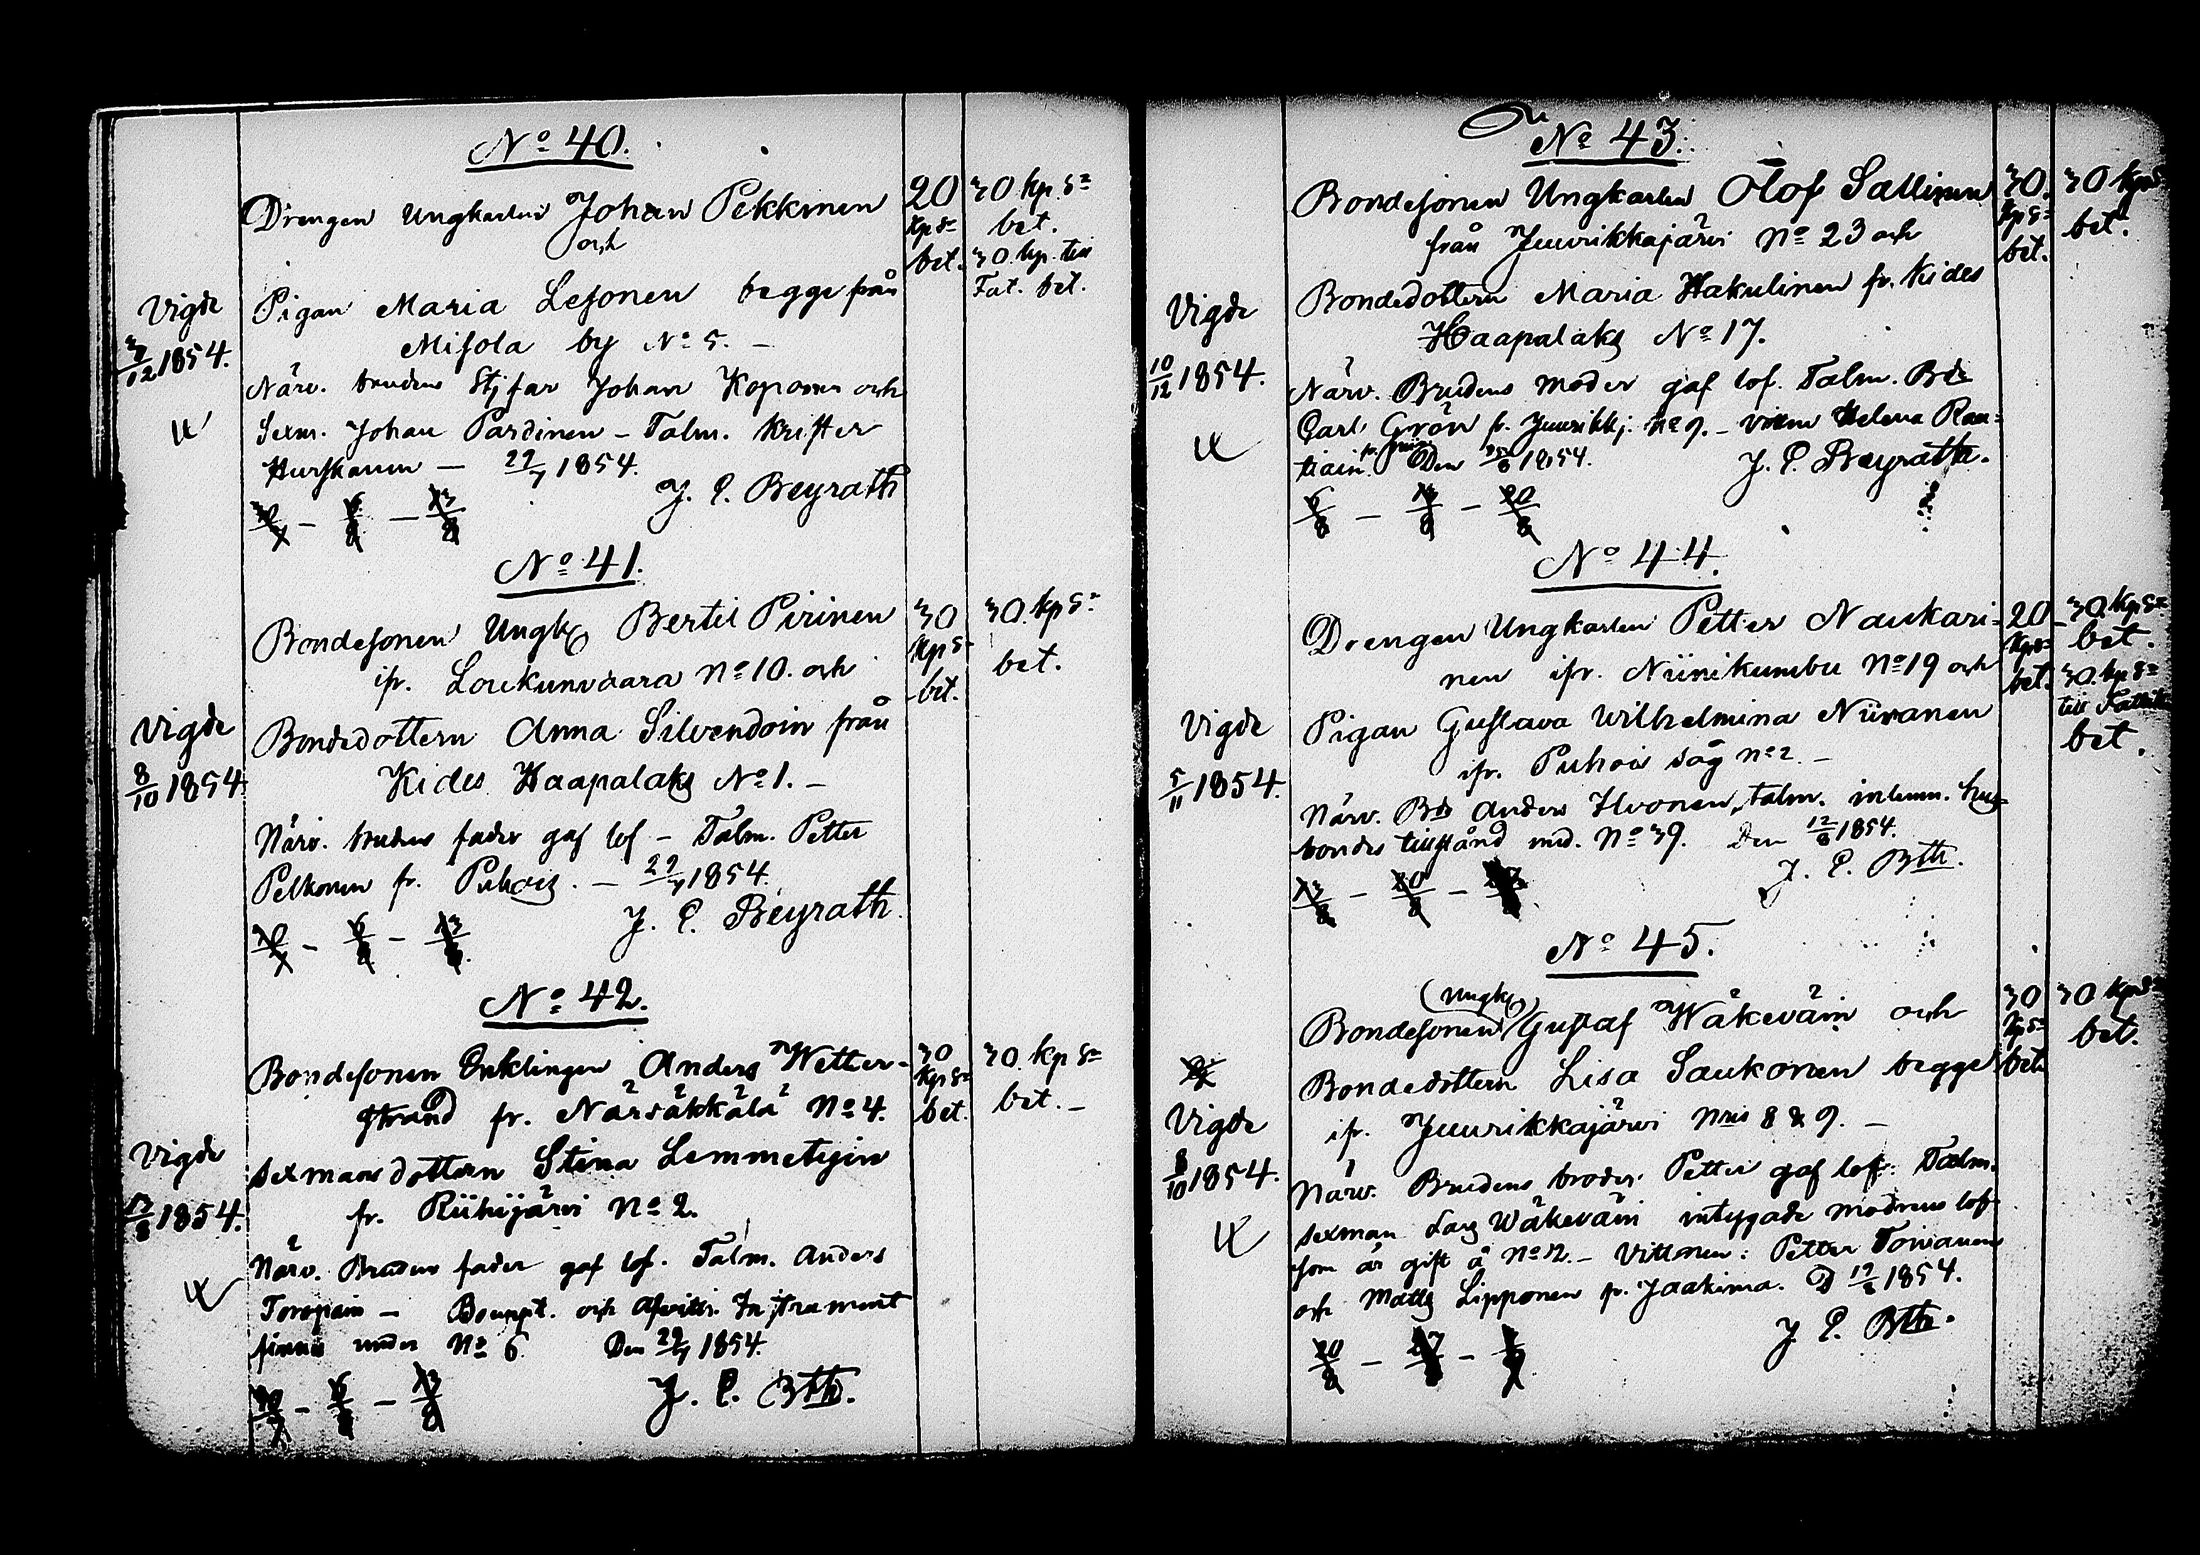 No 40.
Drengen Ungkarlen Johan Pekkinen
och
Pigan Maria Lesonen begge från
Misola by No 5. –
Närv. brudens Stjfar Johan Koponen och
Sexm. Johan Pardinen – Talm. Krister
Hurskainen – 29/7 1854.
J. E. Beyrath
30/7 – 6/8 – 13/8
Vigde
3/12 1854.
20
kp Sr
bet.
30 kp. Sr
bet.
30 kp. till
Fat. bet.
No 41.
Bondesonen Ungk. Bertil Pirinen
ifr. Loukunvaara No 10. och
Bondedottern Anna Silvendoin från
Kides Haapalaks No 1. –
Närv. brudens fader gaf lof – Talm. Petter
Pelkonen fr. Puhois. – 29/7 1854.
J. E. Beyrath.
30/7 – 6/8 – 13/8
Vigde
8/10 1854
30
kp Sr
bet.
30 kp Sr
bet.
No 42.
Bondesonen Enklingen Anders Wetter-
strand fr. Närsäkkälä No 4.
Sexmansdottern Stina Lemmetyin
fr. Riihijärvi No 2.
Närv. Brudens fader gaf lof. Talm. Anders
Toropain – Bouppt. och Afvittr. Instrument
finnes under No 6. Den 29/7 1854.
J. E. Bth.
30/7 – 6/8 – 13/8
Vigde
1854.
30
kp Sr
bet.
30 kp Sr
bet. –
No 43.
Bondesonen Ungkarlen Olof Sallinen
från Juurikkajärvi No 23 och
Bondedottern Maria Hakulinen fr. Kides
Haapalaks No 17.
Närv. Brudens moder gaf lof. Talm. Bde
Carl Grön fr. Juurikkj. No 9. – vittne Helena Rau-
tiain. Den 1854.
J. E. Beyrath.
6/8 – 13/8 – 20/8
Vigde
10/12 1854.
30.
kp Sr
bet.
30 kp Sr
bet.
No 44.
Drengen Ungkarlen Petter Naukari-
nen ifr. Niinikumbu No 19 och
Pigan Gustava Wilhelmina Niiranen
ifr. Puhois såg No 2. –
Närv. Bde Anders Ihvonen, talm. inlemn. hus-
bondes tillstånd med. No 39. Den 12/8 1854.
J. E. Bth.
13/8 – 20/8 – 27/8
Vigde
5/11 1854.
20
kp Sr
bet.
30 kp Sr
bet.
30 kp Sr
till Fattik.
bet.
No 45.
(Ungk.)
Bondesonen Gustaf Wäkeväin och
Bondedottern Lisa Saukonen begge
ifr. Juurikkajärvi Nris 8 & 9. –
Närv. Brudens broder Petter gaf lof. Talm.
sexman Lars Wäkeväin intygade modrens lof
som är gift å No 12. – Vittnen: Petter Toivanen
och Matts Lipponen fr. Jaakima. D 19/8 1854.
J. E. Bth.
20/8 – 27/8 – 3/9
Vigde
8/10 1854.
30
kp Sr
bet.
30 kp Sr
bet.